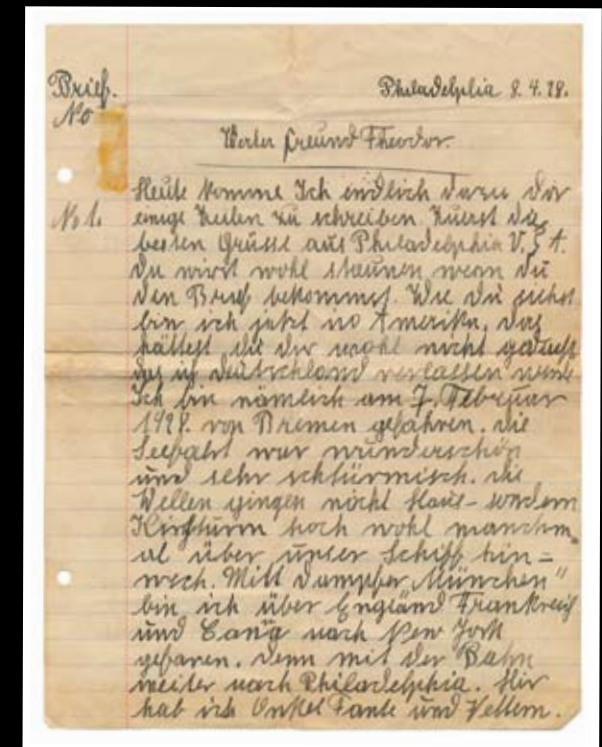 Brief. Philadelphia 8.4.28.
No
Werter Freund Theodor.
Heute komme Ich endlich dazu dir
No 1. einige Zeilen zu schreiben. Zuerst die
besten Grüsse aus Philadelphia U.S.A.
du wirst wohl staunen wenn du
den Brief bekommst. Wie du siehst
bin ich jetzt in Amerika, das
hättest du dir wohl nicht gedacht
das ich deutschland verlassen werde
Ich bin nämlich am 7. Februar
1928. von Bremen gefahren. die
Seefahrt war wünderschön
und sehr schtürmisch. die
Wellen gingen nicht Haus-sondern
Kirchturm hoch wohl manchm
al über unser Schiff hin-
wech. Mitt dampfer „München"
bin ich über England Frankreich
und nach New York
gefaren. denn mit der Bahn
weiter nach Philadelphia. Hir
hab ich Onkel Tante und Vettern.